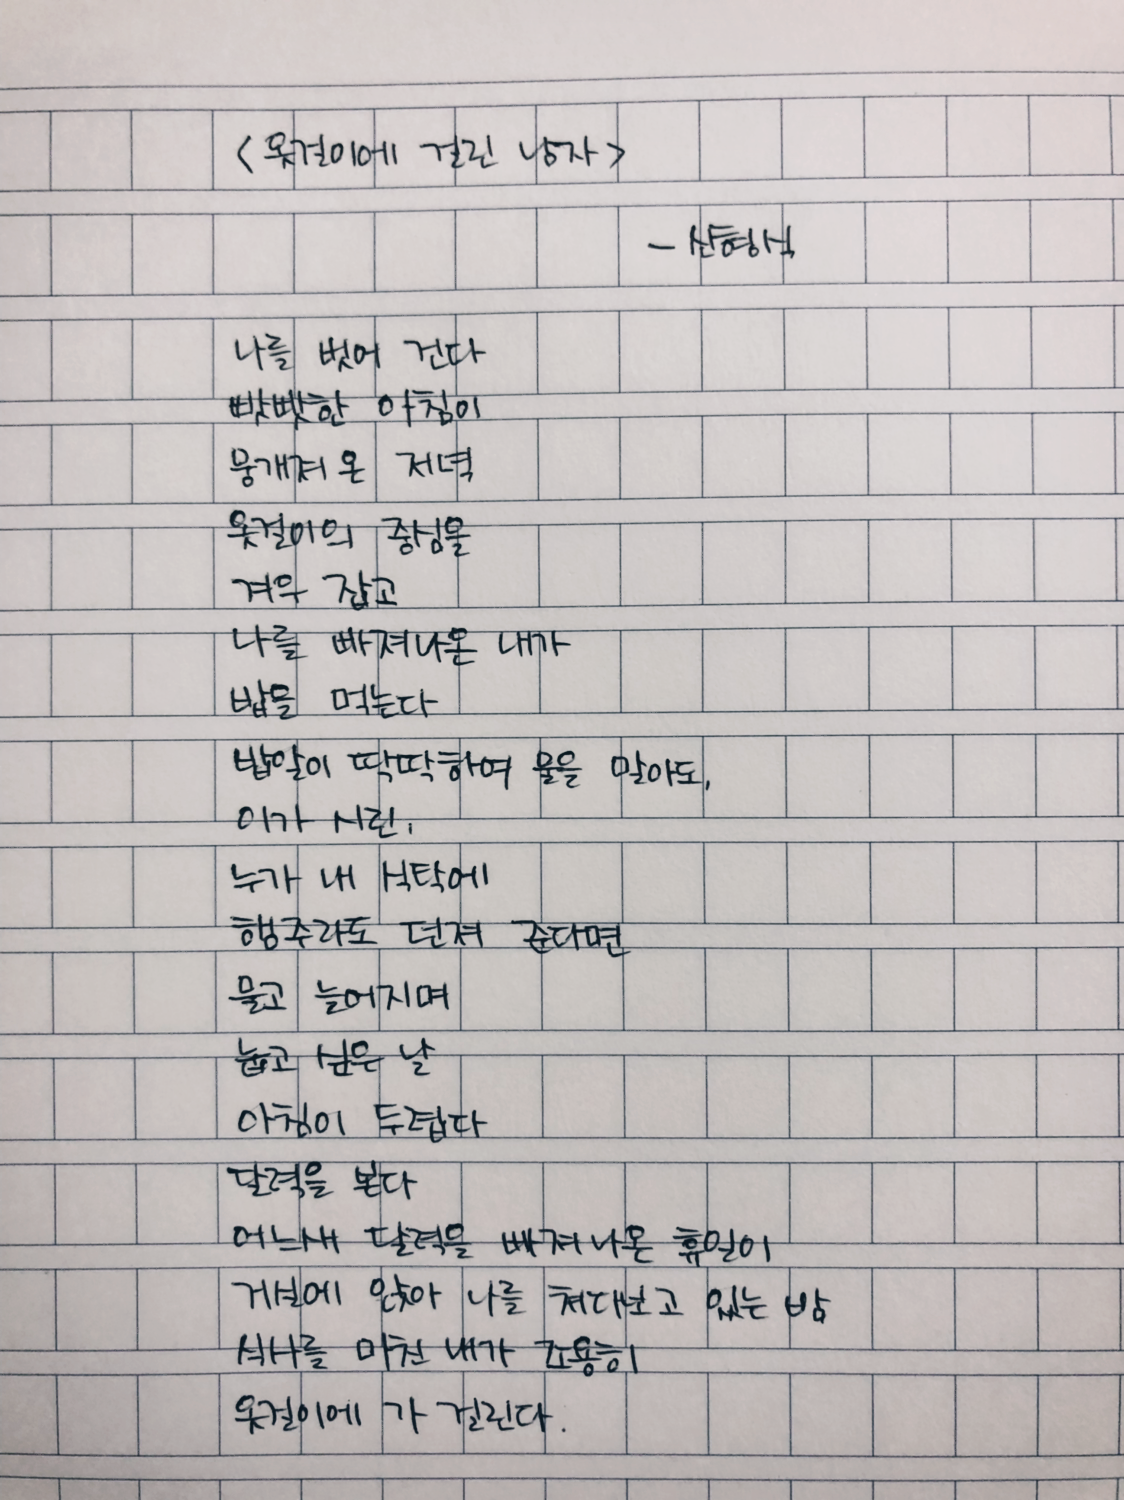 <옷걸이에 걸린 남자>
- 신형식
나를 벗어 건다
빳빳한 아침이
뭉개져 온 저녁
옷걸이의 중심을
겨우 잡고
나를 빠져나온 내가
밥을 먹는다
밥알이 딱딱하여 물을 말아도,
이가 시린,
누가 내 식탁에
행주라도 던져 준다면
물고 늘어지며
눕고 싶은 날
아침이 두렵다
달력을 본다
어느새 달력을 빠져나온 휴일이
거실에 앉아 나를 쳐다보고 있는 밤
식사를 마친 내가 조용히
옷걸이에 가 걸린다.